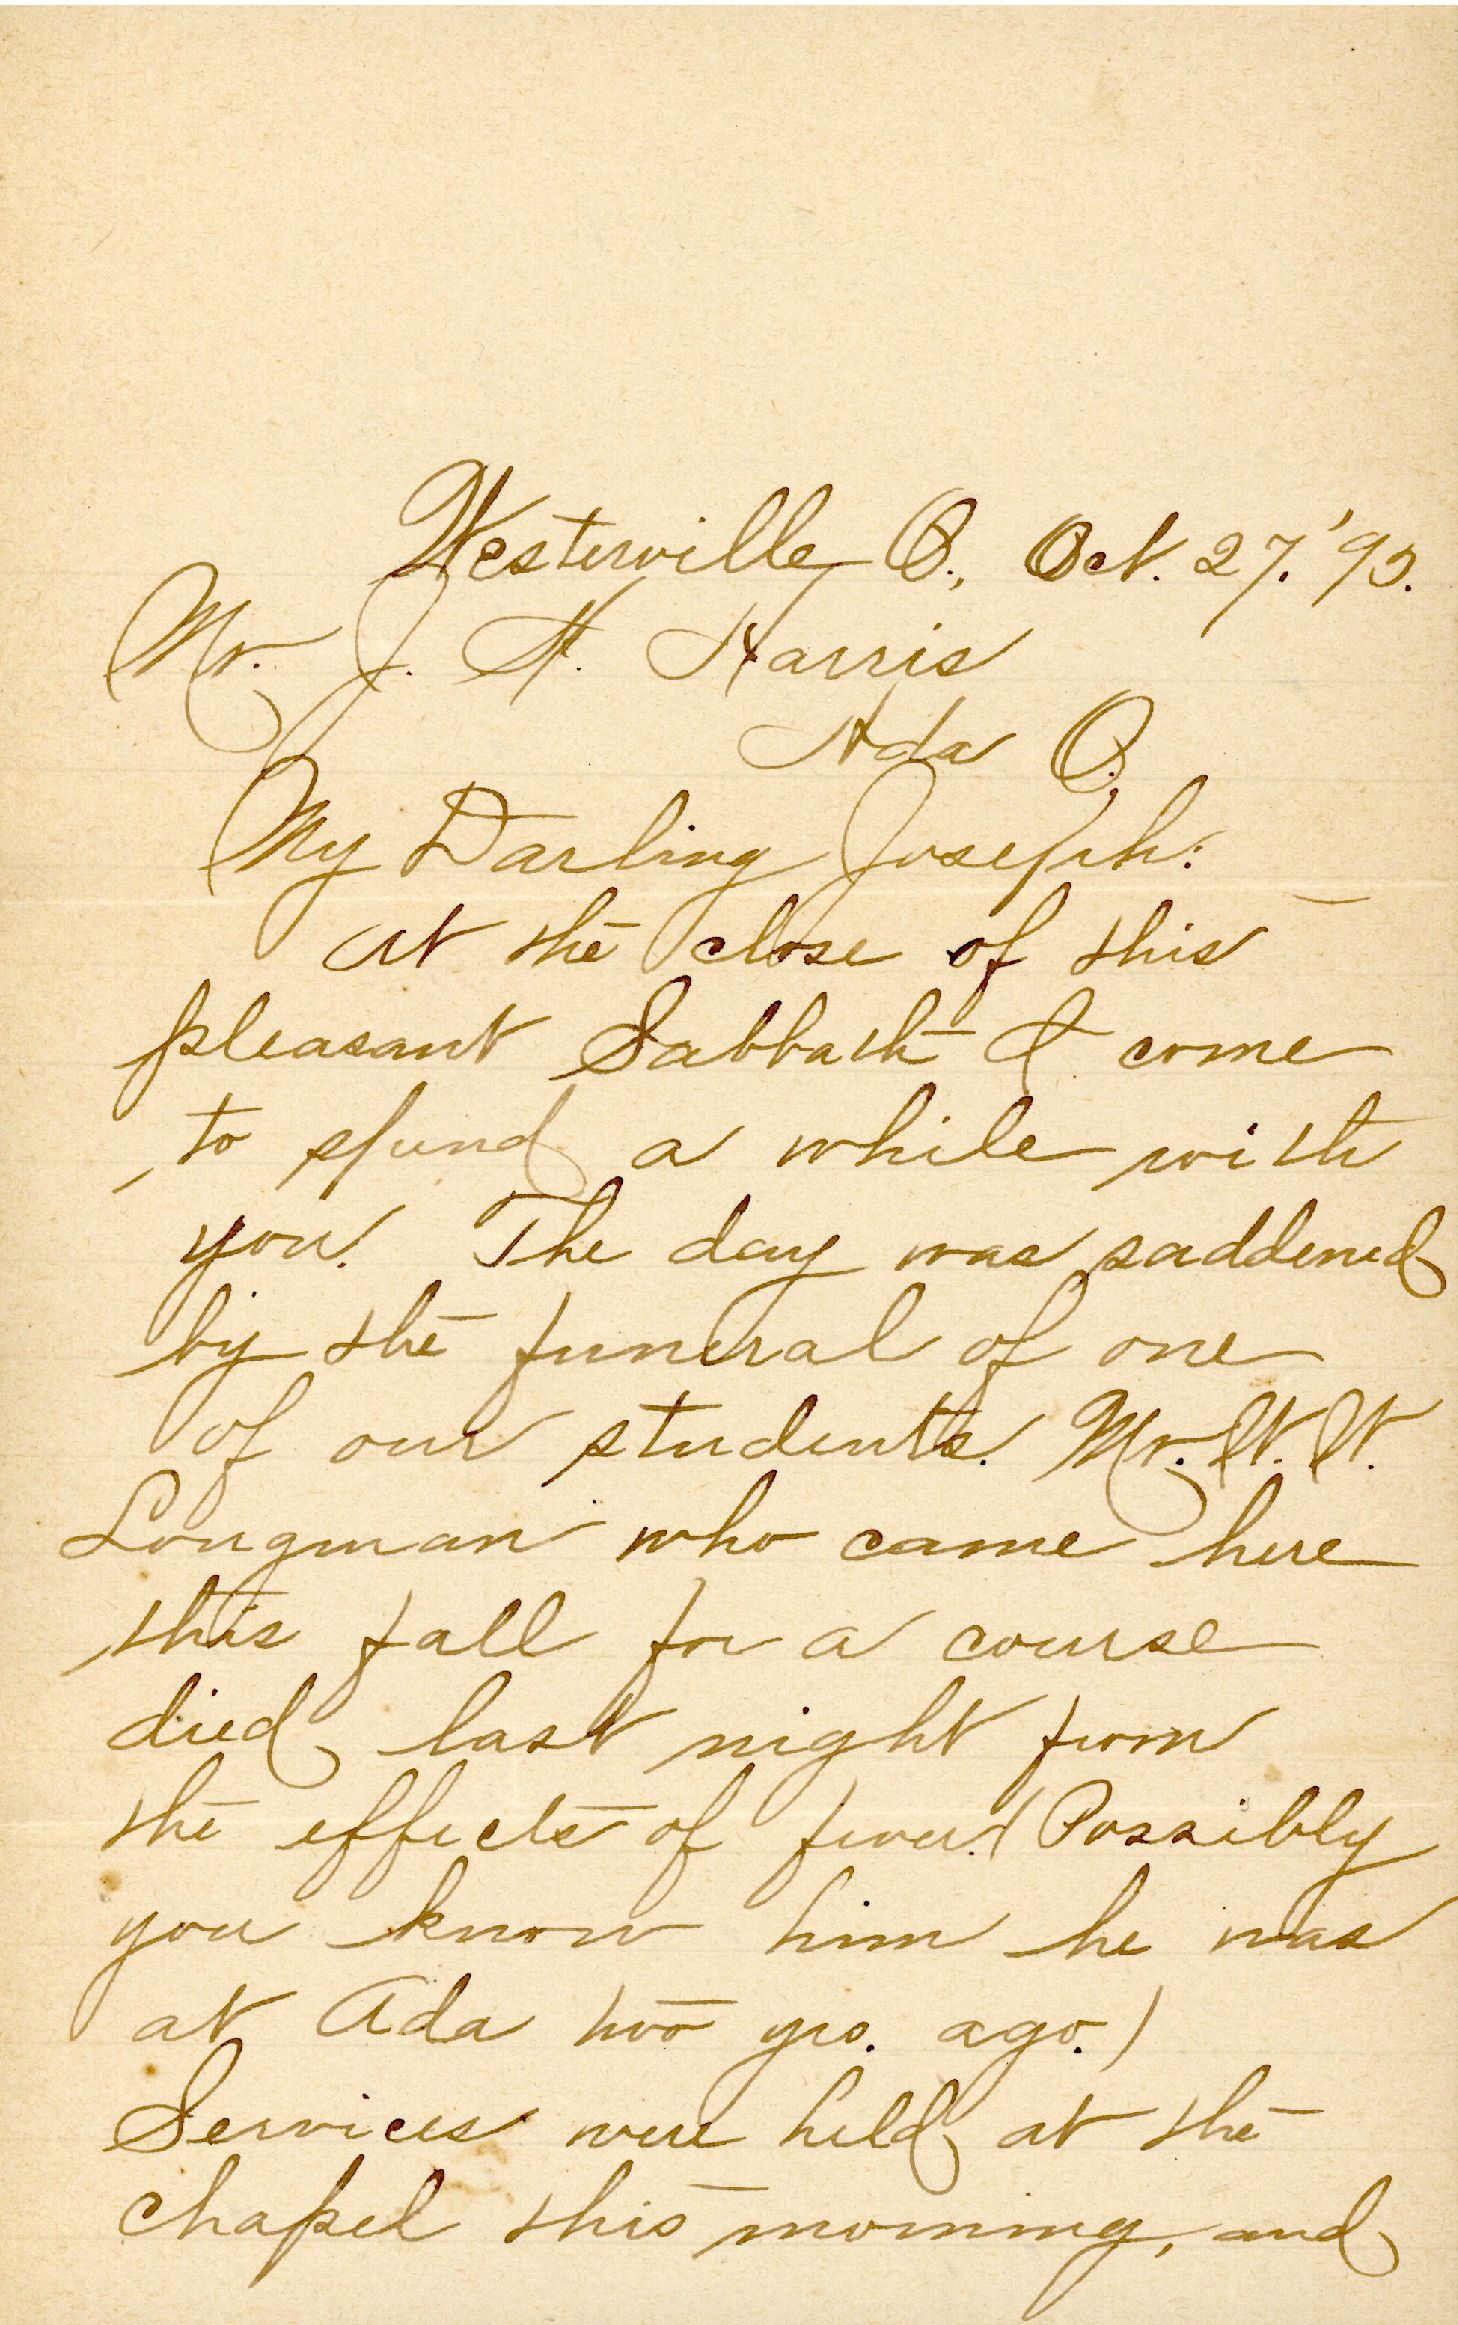 Westerville O., Oct. 27. '95.
Mr. J. H. Harris
Ada O.,
My Darling Joseph:
At the close of this
pleasant Sabbath I come
to spend a while with
you. The day was saddened
by the funeral of one
of our students. Mr. W. W.
Longman who came here
this fall for a course
died last night from
the effects of fever. (Possibly
you know him he was
at Ada two yrs. ago.)
Services were held at the
chapel this morning, and